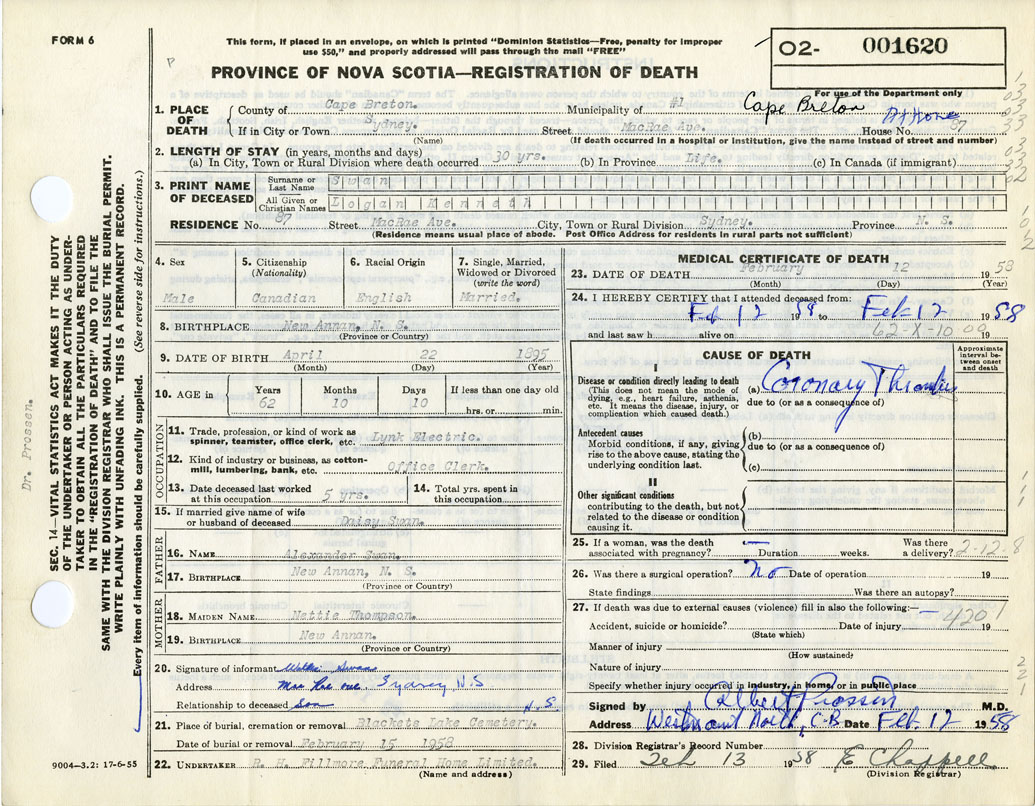 FORM 6
This form, if placed in an envelope, on which is printed "Dominion Statistics—Free, penalty for improper
use $50," and properly addressed will pass through the mail "FREE"
02- 001620
For use of the Department only
PROVINCE OF NOVA SCOTIA—REGISTRATION OF DEATH
1. PLACE OF DEATH County of Cape Breton. Municipality of #1 Cape Breton
If in City or Town Sydney. Street MacRae Ave. House No. 87 At Home
(Name) (If death occurred in a hospital or institution, give the name instead of street and number)
2. LENGTH OF STAY (in years, months and days)
(a) In City, Town or Rural Division where death occurred 30 yrs. (b) In Province Life. (c) In Canada (if immigrant)
3. PRINT NAME OF DECEASED Surname or Last Name Swan
All Given or Christian Names Logan Kenneth
RESIDENCE No. 87 Street MacRae Ave. City, Town or Rural Division Sydney. Province N. S.
(Residence means usual place of abode. Post Office Address for residents in rural parts not sufficient)
4. Sex Male
5. Citizenship (Nationality) Canadian
6. Racial Origin English
7. Single, Married, Widowed or Divorced (write the word) Married.
8. BIRTHPLACE New Annan, N. S.
(Province or Country)
9. DATE OF BIRTH April 22 1895
(Month) (Day) (Year)
10. AGE in Years 62 Months 10 Days 10 If less than one day old hrs. or min.
OCCUPATION
11. Trade, profession, or kind of work as spinner, teamster, office clerk, etc. Lynk Electric.
12. Kind of industry or business, as cotton-mill, lumbering, bank, etc. Office Clerk.
13. Date deceased last worked at this occupation 5 yrs.
14. Total yrs. spent in this occupation
15. If married give name of wife or husband of deceased Daisy Swan.
FATHER
16. NAME Alexander Swan.
17. BIRTHPLACE New Annan, N. S.
(Province or Country)
MOTHER
18. MAIDEN NAME Nettie Thompson.
19. BIRTHPLACE New Annan.
(Province or Country)
20. Signature of informant Swan
Address Mac Rae ave, Sydney N.S
Relationship to deceased Son
N.S.
21. Place of burial, cremation or removal Blackets Lake Cemetery.
Date of burial or removal February 15 1958
22. UNDERTAKER R. H. Fillmore Funeral Home Limited.
(Name and address)
9004-3.2: 17-6-55
MEDICAL CERTIFICATE OF DEATH
23. DATE OF DEATH February 12 1958
(Month) (Day) (Year)
24. I HEREBY CERTIFY that I attended deceased from:
Feb 12 1958 to Feb 12 1958
and last saw h alive on 62-X-10 09 19
CAUSE OF DEATH
Approximate interval between onset and death
I
Disease or condition directly leading to death
(This does not mean the mode of dying, e.g., heart failure, asthenia, etc. It means the disease, injury, or complication which caused death.)
(a) Coronary
due to (or as a consequence of)
Antecedent causes
Morbid conditions, if any, giving rise to the above cause, stating the underlying condition last.
(b)
due to (or as a consequence of)
(c)
II
Other significant conditions
contributing to the death, but not related to the disease or condition causing it.
25. If a woman, was the death associated with pregnancy? — Duration weeks. Was there a delivery? 2-12-8
26. Was there a surgical operation? No Date of operation 19
State findings Was there an autopsy?
27. If death was due to external causes (violence) fill in also the following:— 4201
Accident, suicide or homicide? Date of injury 19
(State which)
Manner of injury
(How sustained)
Nature of injury
Specify whether injury occurred in industry, in home, or in public place
Signed by Albert Prossin M.D.
Address Westmount North, C.B. Date Feb. 12 1958
28. Division Registrar's Record Number
29. Filed Feb 13 1958 E Chappell
(Division Registrar)
SEC. 14—VITAL STATISTICS ACT MAKES IT THE DUTY
OF THE UNDERTAKER OR PERSON ACTING AS UNDER-
TAKER TO OBTAIN ALL THE PARTICULARS REQUIRED
IN THE "REGISTRATION OF DEATH" AND TO FILE THE
SAME WITH THE DIVISION REGISTRAR WHO SHALL ISSUE THE BURIAL PERMIT.
WRITE PLAINLY WITH UNFADING INK. THIS IS A PERMANENT RECORD.
Every item of information should be carefully supplied. (See reverse side for instructions.)
Dr. Prossen.